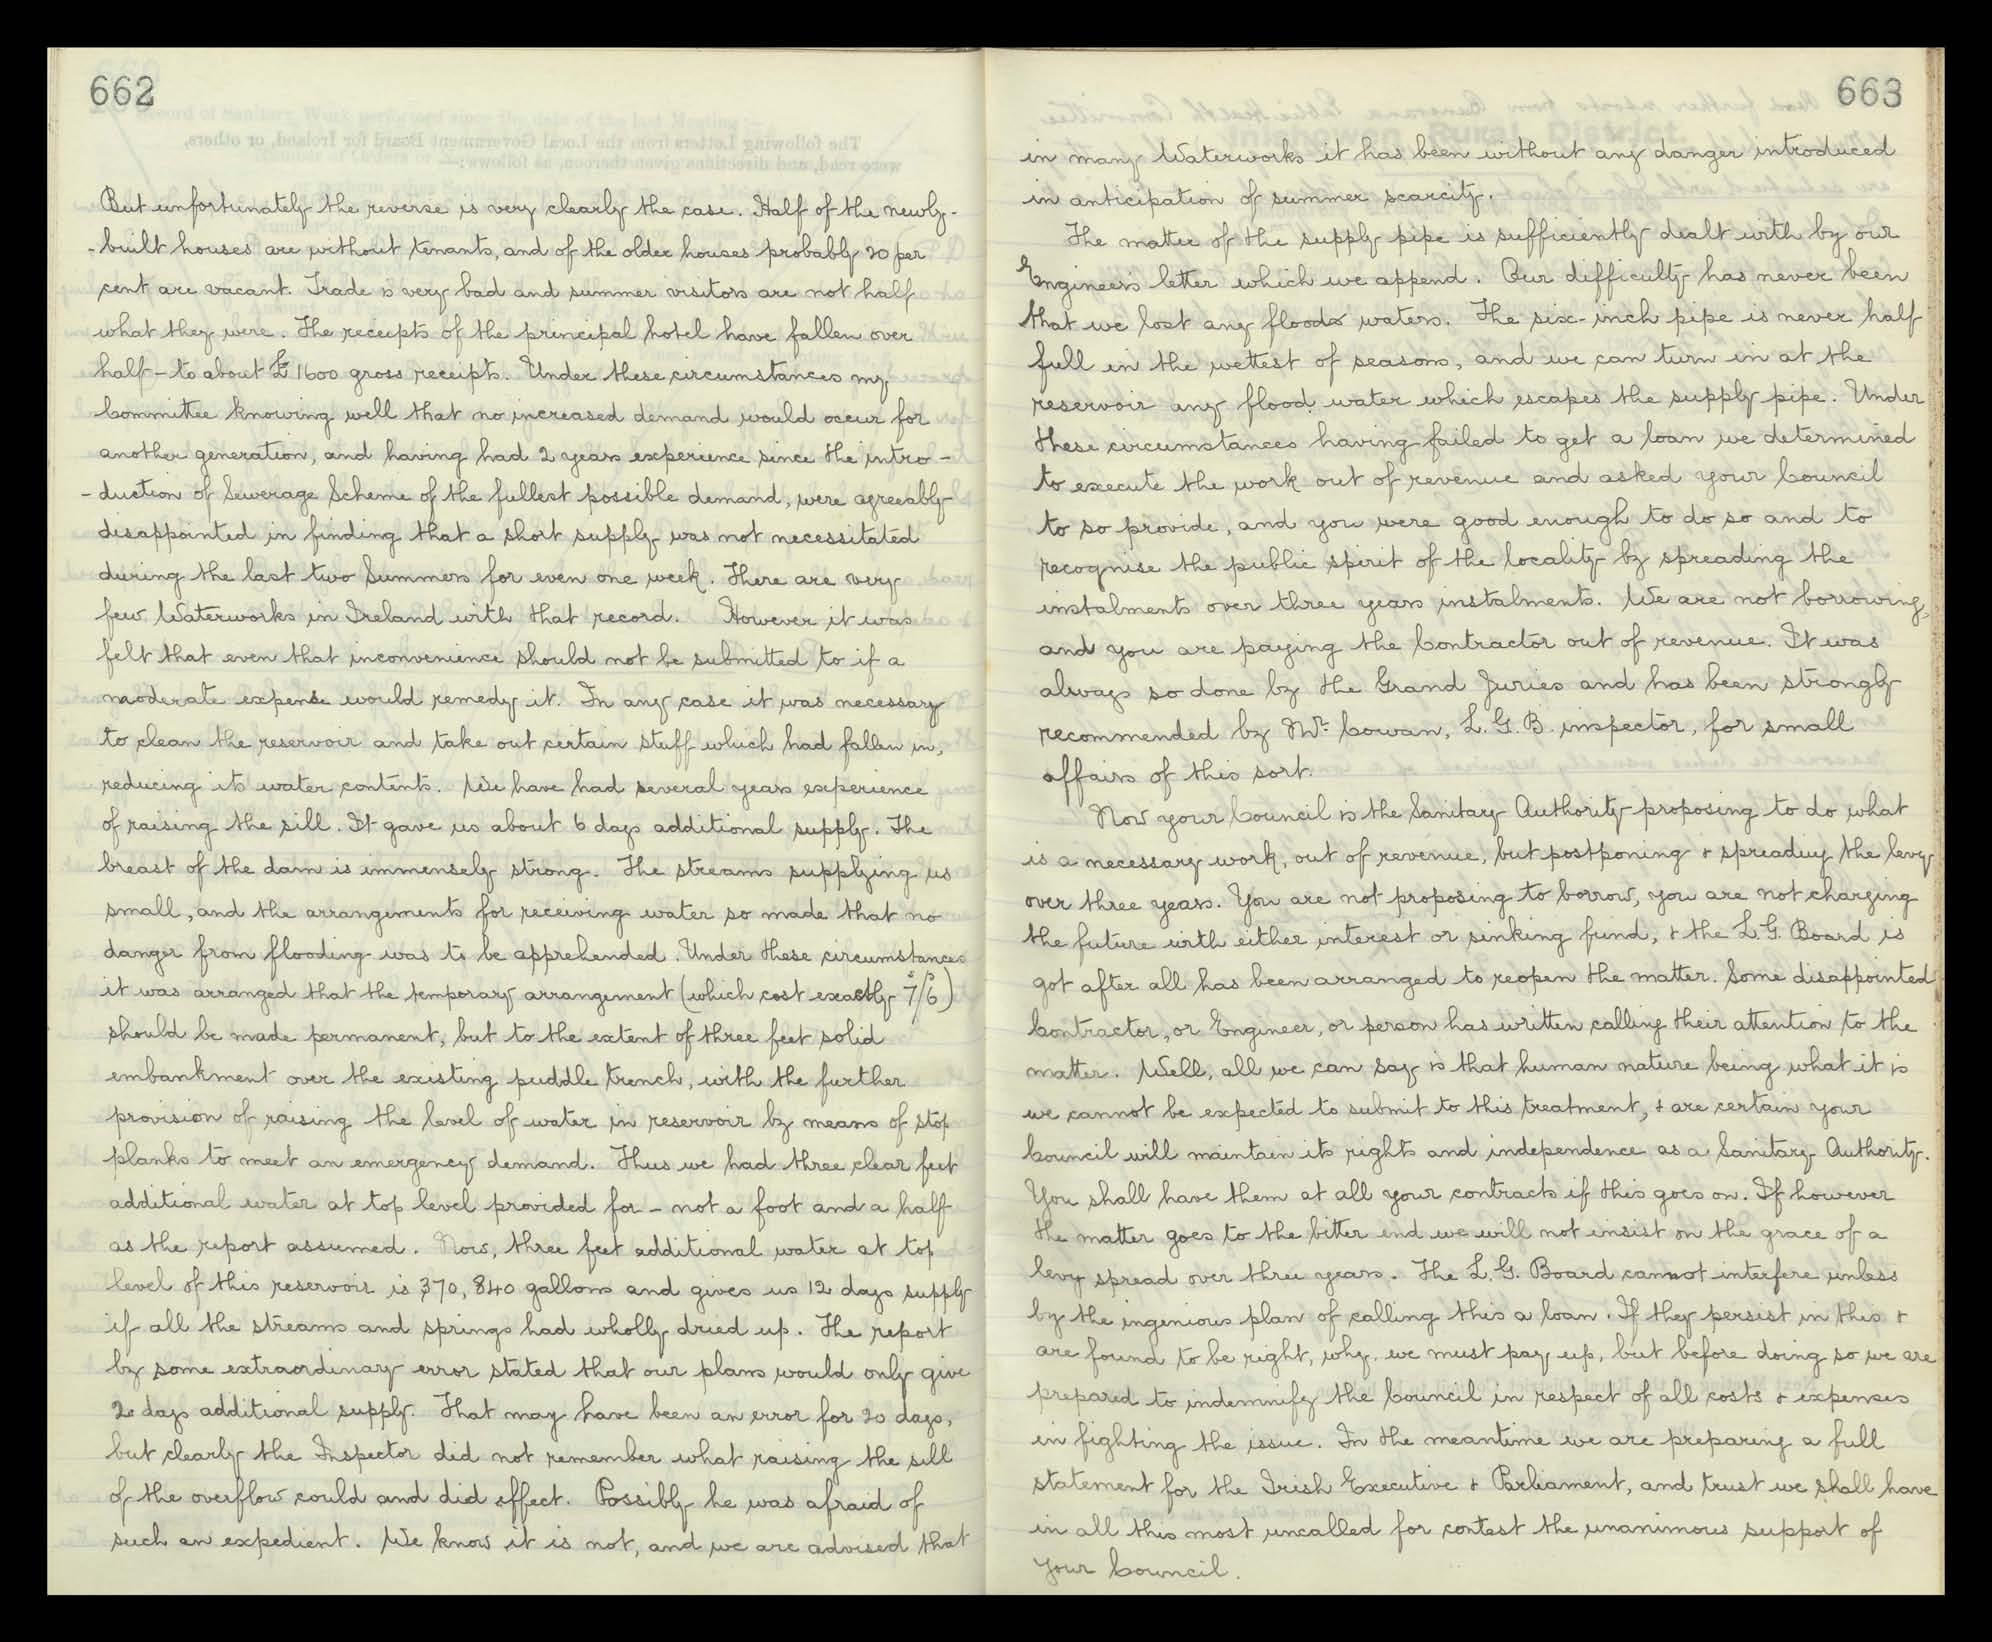 662
But unfortunately the reverse is very clearly the case. Half of the newly-
-built houses are without tenants, and of the older houses probably 20 per
cent are vacant. Trade is very bad and summer visitors are not half
what they were. The receipts of the principal hotel have fallen over
half – to about £1600 gross receipts. Under these circumstances my
Committee knowing well that no increased demand would occur for
another generation, and having had 2 years experience since the intro-
-duction of Sewerage Scheme of the fullest possible demand, were agreeably
disappointed in finding that a short supply was not necessitated
during the last two Summers for even one week. There are very
few Waterworks in Ireland with that record. However it was
felt that even that inconvenience should not be submitted to if a
moderate expense would remedy it. In any case it was necessary
to clean the reservoir and take out certain stuff which had fallen in,
reducing its water contents. We have had several years experience
of raising the sill. It gave us about 6 days additional supply. The
breast of the dam is immensely strong. The streams supplying us
small, and the arrangements for receiving water so made that no
danger from flooding was to be apprehended. Under these circumstances
it was arranged that the temporary arrangement (which cost exactly 7s/6p)
should be made permanent, but to the extent of three feet solid
embankment over the existing puddle trench, with the further
provision of raising the level of water in reservoir by means of stop
planks to meet an emergency demand. Thus we had three clear feet
additional water at top level provided for – not a foot and a half
as the report assumed. Now, three feet additional water at top
level of this reservoir is 370,840 gallons and gives us 12 days supply
if all the streams and springs had wholly dried up. The report
by some extraordinary error stated that our plans would only give
2 days additional supply. That may have been an error for 20 days,
but clearly the Inspector did not remember what raising the sill
of the overflow could and did effect. Possibly he was afraid of
such an expedient. We know it is not, and we are advised that
663
in many Waterworks it has been without any danger introduced
in anticipation of summer scarcity.
The matter of the supply pipe is sufficiently dealt with by our
Engineer's letter which we append. Our difficulty has never been
that we lost any floods waters. The six-inch pipe is never half
full in the wettest of seasons, and we can turn in at the
reservoir any flood water which escapes the supply pipe. Under
these circumstances having failed to get a loan we determined
to execute the work out of revenue and asked your Council
to so provide, and you were good enough to do so and to
recognise the public spirit of the locality by spreading the
instalments over three years instalments. We are not borrowing,
and you are paying the Contractor out of revenue. It was
always so done by the Grand Juries and has been strongly
recommended by Mr. Cowan, L.G.B. inspector, for small
affairs of this sort.
Now your Council is the Sanitary Authority proposing to do what
is a necessary work, out of revenue, but postponing & spreading the levy
over three years. You are not proposing to borrow, you are not charging
the future with either interest or sinking fund, & the L.G. Board is
got after all has been arranged to reopen the matter. Some disappointed
Contractor, or Engineer, or person has written calling their attention to the
matter. Well, all we can say is that human nature being what it is
we cannot be expected to submit to this treatment, & are certain your
Council will maintain its rights and independence as a Sanitary Authority.
You shall have them at all your contracts if this goes on. If however
the matter goes to the bitter end we will not insist on the grace of a
levy spread over three years. The L.G. Board cannot interfere unless
by the ingenious plan of calling this a loan. If they persist in this &
are found to be right, why, we must pay up, but before doing so we are
prepared to indemnify the Council in respect of all costs & expenses
in fighting the issue. In the meantime we are preparing a full
statement for the Irish Executive & Parliament, and trust we shall have
in all this most uncalled for contest the unanimous support of
your Council.